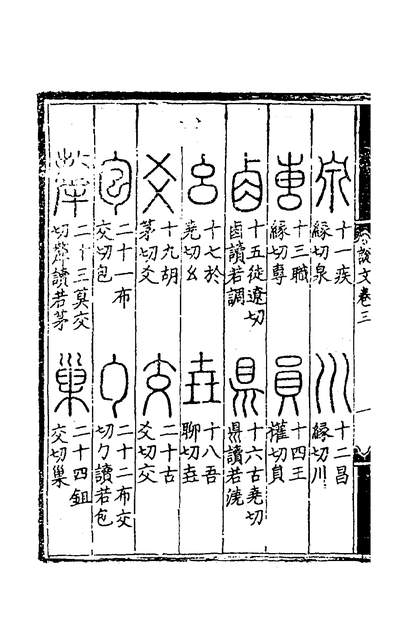 說文卷三
一
泉
十一疾
緣切泉
川
十二昌
緣切川
叀
十三職
緣切專
員
十四王
權切員
卤
十五徒遼切
卤讀若調
県
十六古堯切
県讀若澆
幺
十七於
堯切幺
垚
十八吾
聊切垚
爻
十九胡
茅切爻
交
二十古
爻切交
包
二十一布
交切包
勹
二十二布交
切勹讀若包
犛
二十三莫交
切犛讀若茅
巢
二十四鉏
交切巢